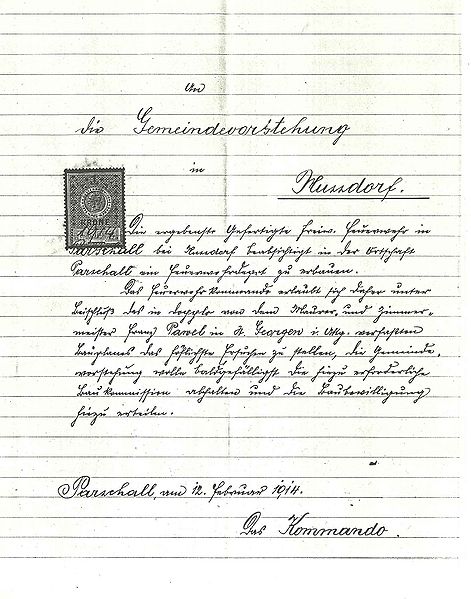 An
die Gemeindevorstehung
in
Nussdorf.
KRONE
1914
Die ergebenst Gefertigte freiw. Feuerwehr in
Parschall bei Nussdorf beabsichtigt in der Ortschaft
Parschall ein Feuerwehrdepot zu erbauen.
Das Feuerwehrkommando erlaubt sich daher unter
Beischluß des in dopplo von dem Maurer, und Zimmer-
meister Franz Pawel in St. Georgen i. Attg. verfaßten
Bauplanes das höflichste Ersuchen zu stellen, die Gemeinde-
vorstehung wolle baldgefälligst die hiezu erforderliche
Baukommission abhalten und die Baubewilligung
hiezu erteilen.
Parschall, am 12. Februar 1914.
Das Kommando.